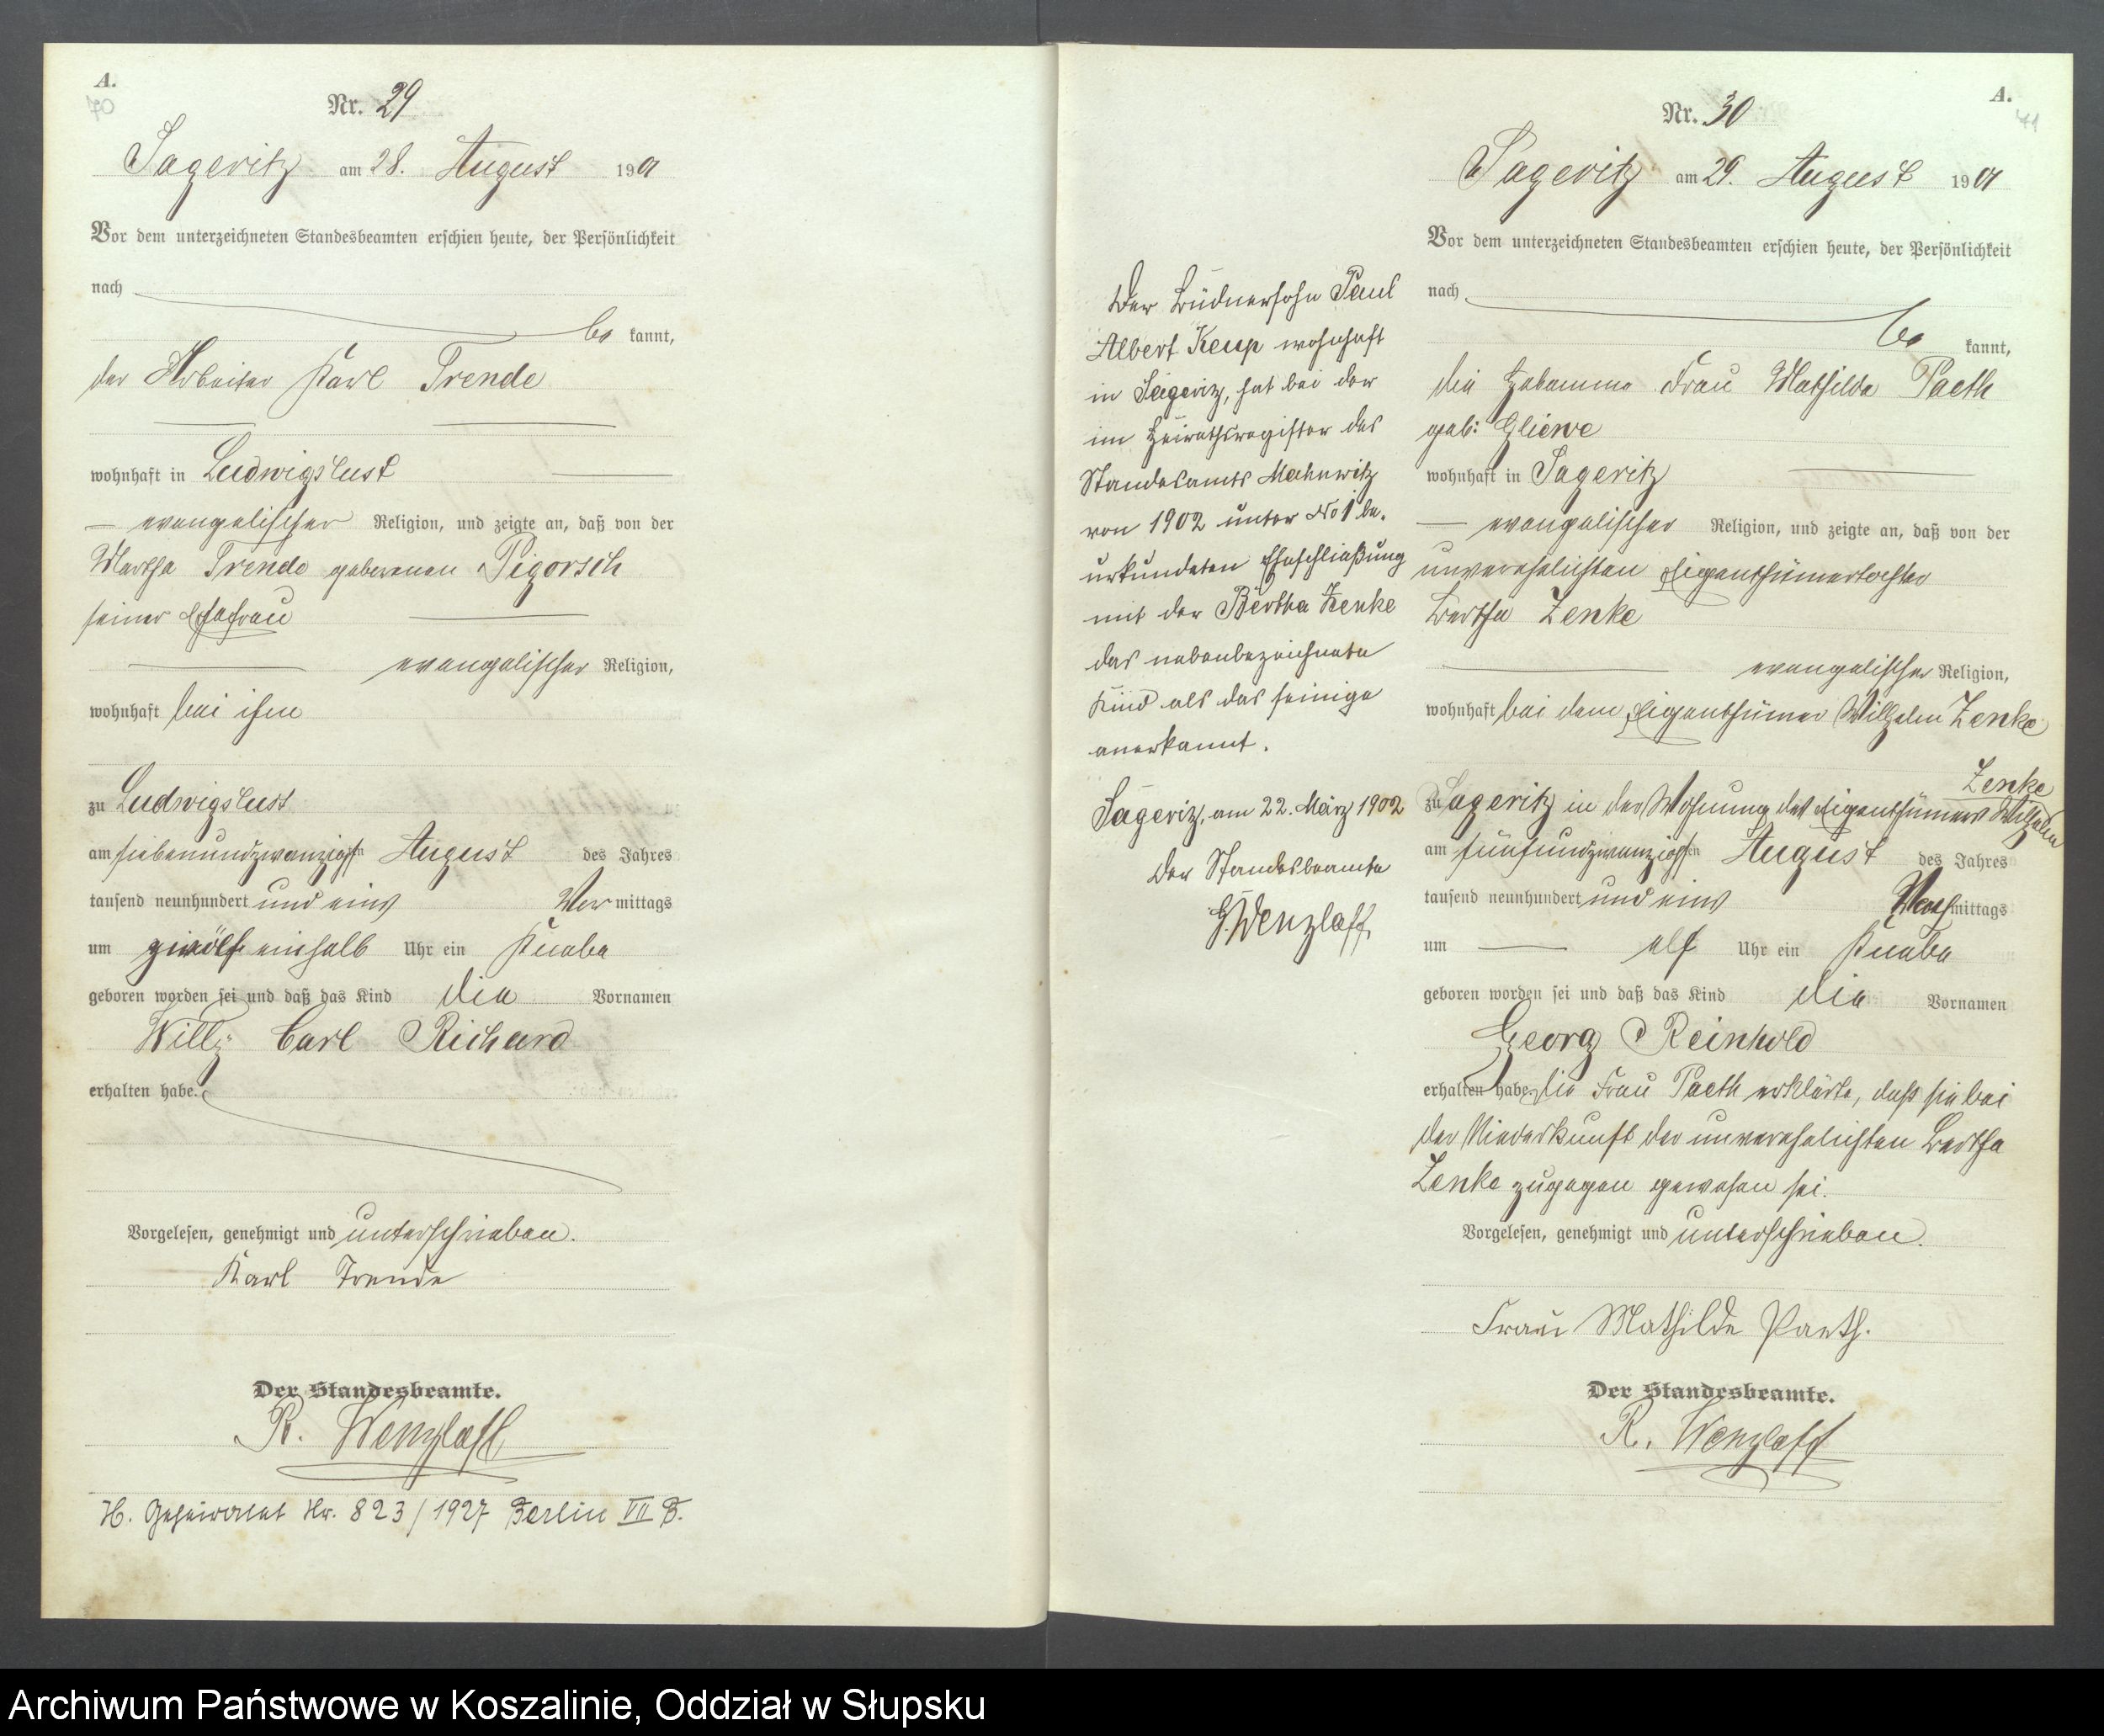 A.
70
Nr. 29
Sageritz am 28. August 1901
Vor dem unterzeichneten Standesbeamten erschien heute, der Persönlichkeit
nach
be kannt,
der Arbeiter Karl Trende
wohnhaft in Ludwigslust
evangelischer Religion, und zeigte an, daß von der
Martha Trende geborenen Pigorsch
seiner Ehefrau
evangelischer Religion,
wohnhaft bei ihm
zu Ludwigslust
am siebenundzwanzigsten August des Jahres
tausend neunhundert und eins Vormittags
um zwölf einhalb Uhr ein Knabe
geboren worden sei und daß das Kind die Vornamen
Willy Carl Richard
erhalten habe.
Vorgelesen, genehmigt und unterschrieben.
Karl Trende
Der Standesbeamte.
R. Wenzlaff
H. Geheiratet Nr. 823/1927 Berlin VII B.
A.
71
Nr. 30
Sageritz am 29. August 1901
Vor dem unterzeichneten Standesbeamten erschien heute, der Persönlichkeit
nach
be kannt,
die Hebamme Frau Mathilde Paeth
geb: Gliewe
wohnhaft in Sageritz
evangelischer Religion, und zeigte an, daß von der
unverehelichten Eigenthümertochter
Bertha Zenke
evangelischer Religion,
wohnhaft bei dem Eigenthümer Wilhelm Zenke
Zenke
zu Sageritz in der Wohnung des Eigenthümers Wilhelm
am fünfundzwanzigsten August des Jahres
tausend neunhundert und eins Nachmittags
um elf Uhr ein Knabe
geboren worden sei und daß das Kind die Vornamen
Georg Reinhold
erhalten habe. Die Frau Paeth erklärte, daß sie bei
der Niederkunft der unverehelichten Bertha
Zenke zugegen gewesen sei.
Vorgelesen, genehmigt und unterschrieben.
Frau Mathilde Paeth.
Der Standesbeamte.
R. Wenzlaff
Der Büdnersohn Paul
Albert Kemp wohnhaft
in Sageriz, hat bei der
im Heirathsregister des
Standesamts Mahnwitz
von 1902 unter No 1 be-
urkundeten Eheschließung
mit der Bertha Zenke
das nebenbezeichnete
Kind als das seinige
anerkannt.
Sageriz, am 22. März 1902
Der Standesbeamte
G. Wenzlaff.
Archiwum Państwowe w Koszalinie, Oddział w Słupsku